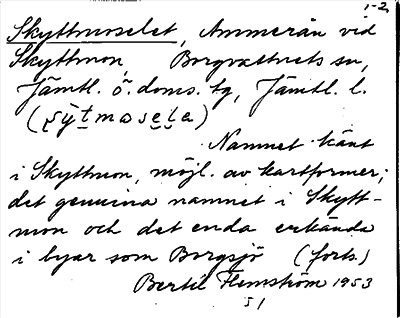 1-2
Skyttmoselet, Ammerån vid
Skyttmon Borgvattnets sn,
Jämtl. ö. doms. tg, Jämtl. l.
(sỳtmosela)
Namnet känt
i Skyttmon, möjl. av kartformer;
det genuina namnet i Skytt-
mon och det enda erkända
i byar som Borgsjö (forts.)
Bertil Flemström 1953
51